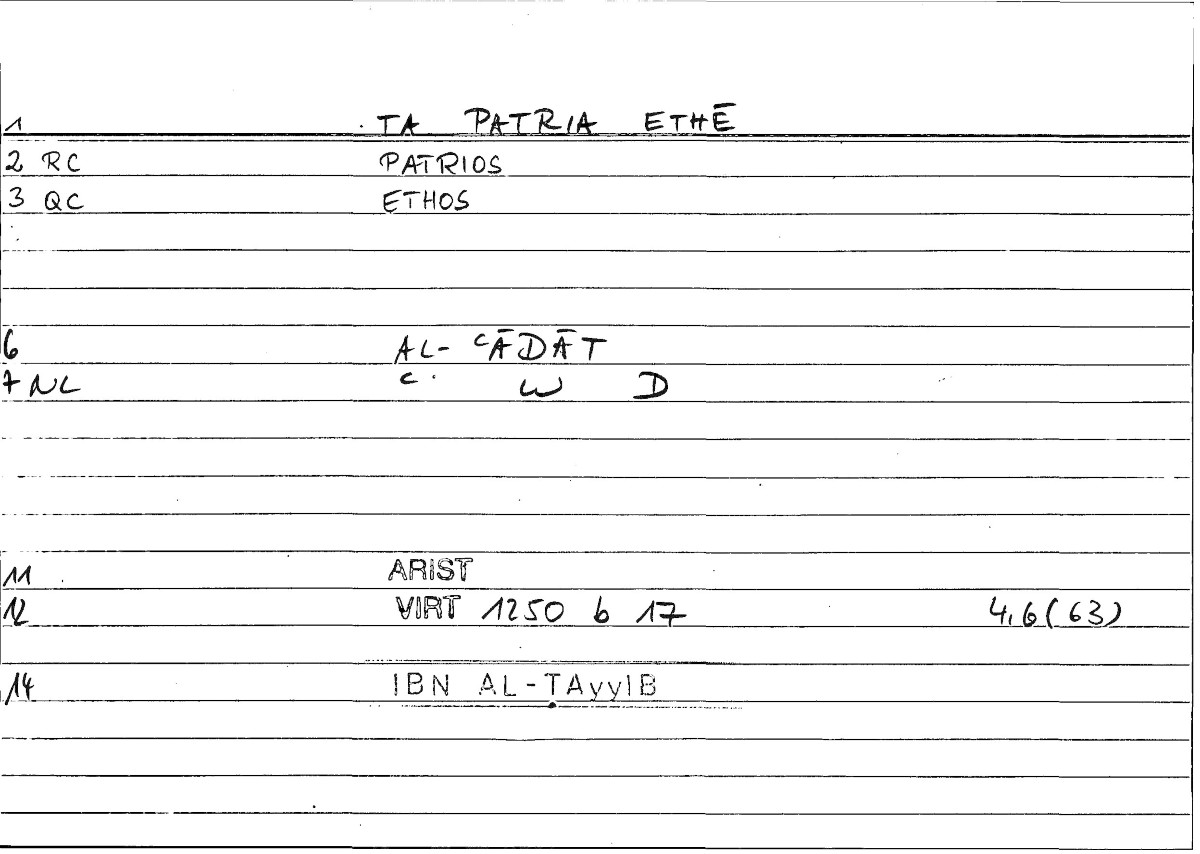 1 TA PATRIA ETHĒ
2 RC PATRIOS
3 QC ETHOS
6 AL-ʿĀDĀT
7 NL ʿ W D
11 ARIST
12 VIRT 1250 b 17 4,6(63)
14 IBN AL-ṬAyyIB